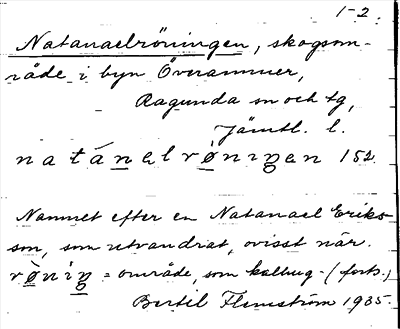 1-2.
Natanaelröningen, skogsom-
råde i byn Överammer,
Ragunda sn och tg,
Jämtl. l.
natánelrøniŋen 152.
Namnet efter en Natanael Eriks-
son, som utvandrat, ovisst när.
røniŋ = område, som kalhug- (forts.)
Bertil Flemström 1935.